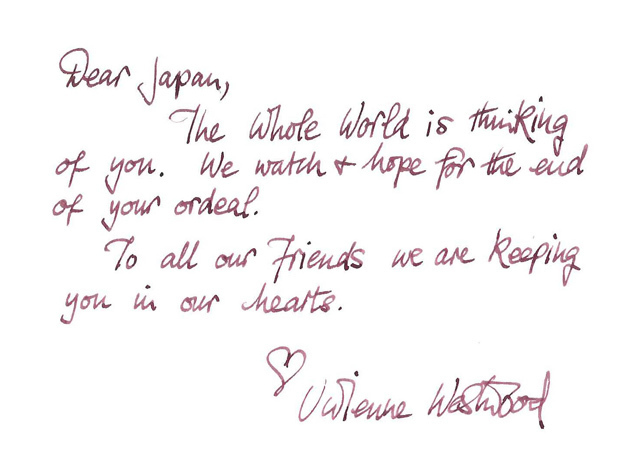 Dear Japan,
The Whole World is thinking
of you. We watch + hope for the end
of your ordeal.
To all our Friends we are keeping
you in our hearts.
Vivienne Westwood